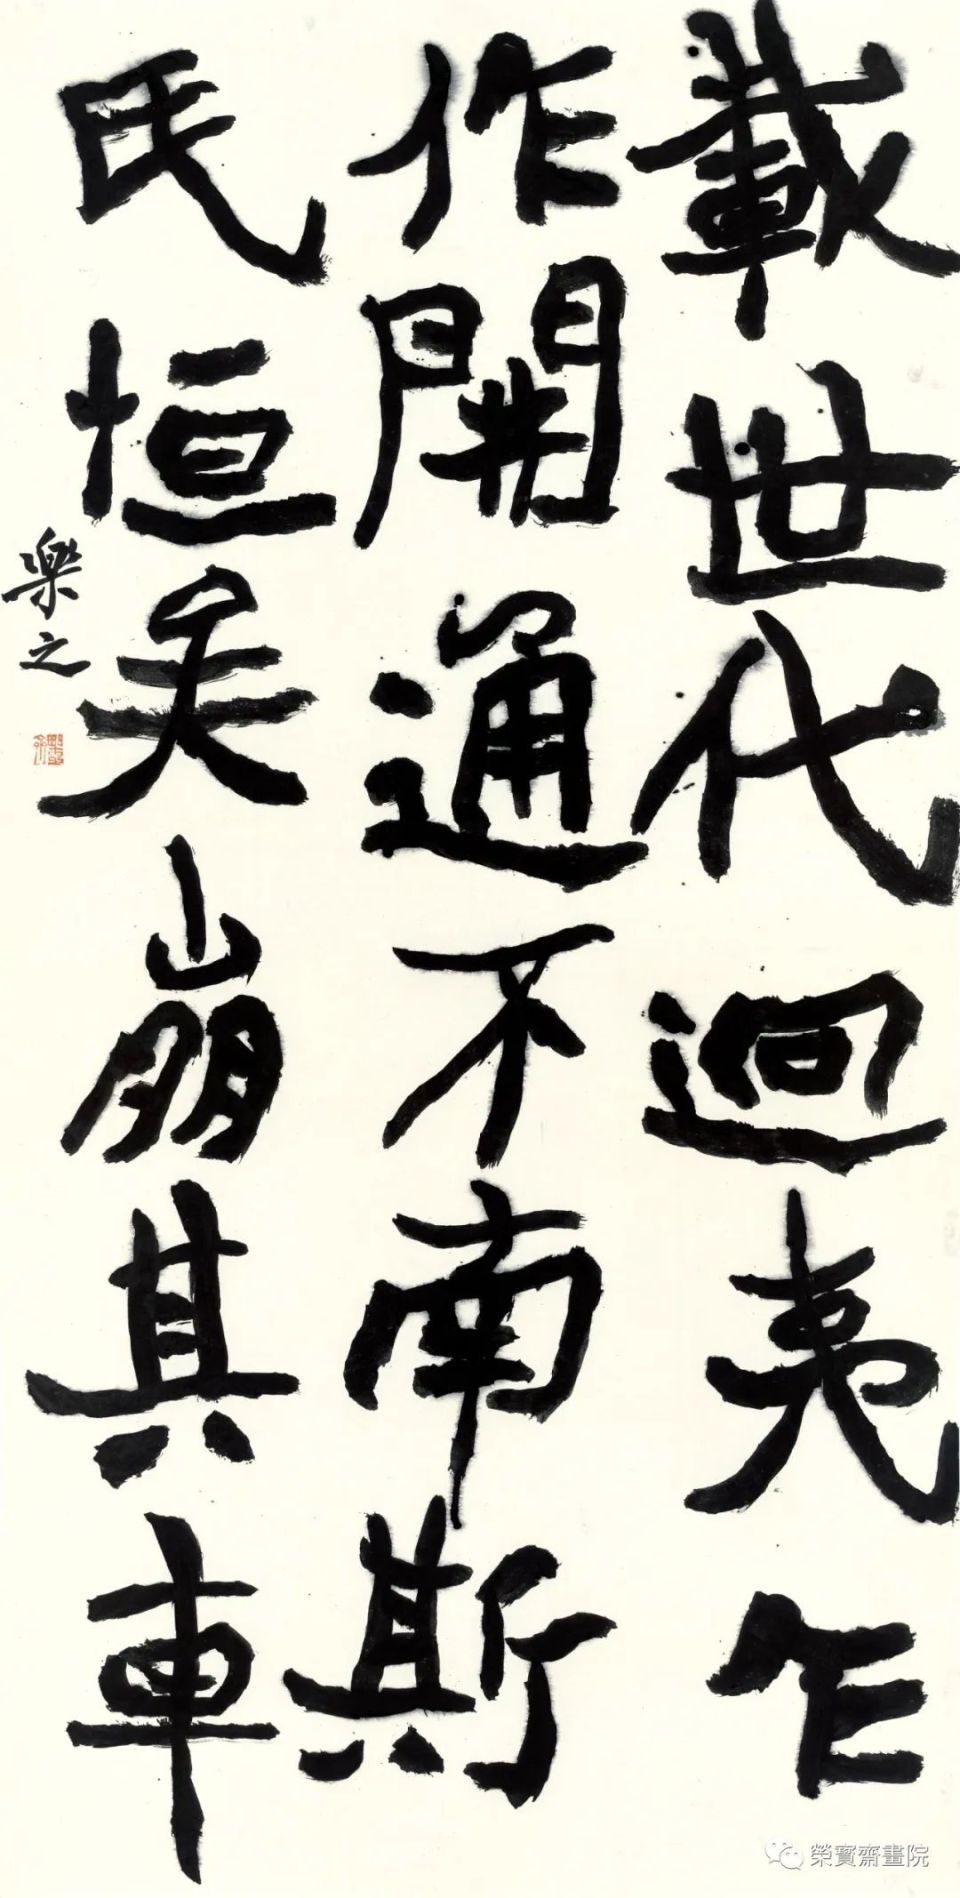 載世代迥夷乍
作開通不南斯
民恒矣崩其車
樂之
榮寶齋畫院